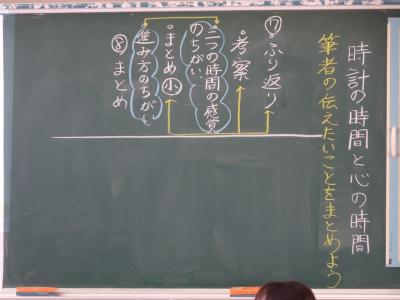 時計の時間と心の時間
筆者の伝えたいことをまとめよう
⑦。ふり返り
。考察
二つの時間の感覚
のちがい
。まとめ小
進み方のちがい
⑧まとめ